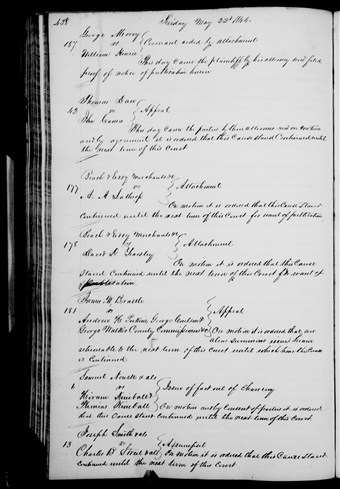 438 Friday May 22d 1846.
George Morey
137 vs Covenant aided by attachment
William
This day came the plaintiff by his attorney and filed
proof of notice of publication herein
Thomas Law
43 vs Appeal
John
This day came the parties by their attornies and on motion
and by agreement it is ordered that this Cause Stand Continued until
the next term of this Court
& Merchants &c
177 vs Attachment
A. A. Lathrop
On motion it is ordered that this Cause Stand
Continued until the next term of this Court for want of publication
& Merchants &c
178 vs Attachment
David D.
On motion it is ordered that this Cause
Stand Continued until the next term of this Court for want of
publication
James W.
181 vs Appeal
Andrew H. Perkins George
George Walker County Commissioners &c On motion it is ordered that an
alias Summons issue herein
returnable to the next term of this Court until which time this Cause
is Continued
Samuel & als
6 vs Issue of fact out of Chancery
Hiram Kimball
Phineas Kimball On motion and by Consent of parties it is ordered
that this Cause Stand Continued until the next term of this Court.
Joseph Smith & als
13 vs Assumpsit
Charles B. & als On motion it is ordered that this Cause Stand
Continued until the next term of this Court